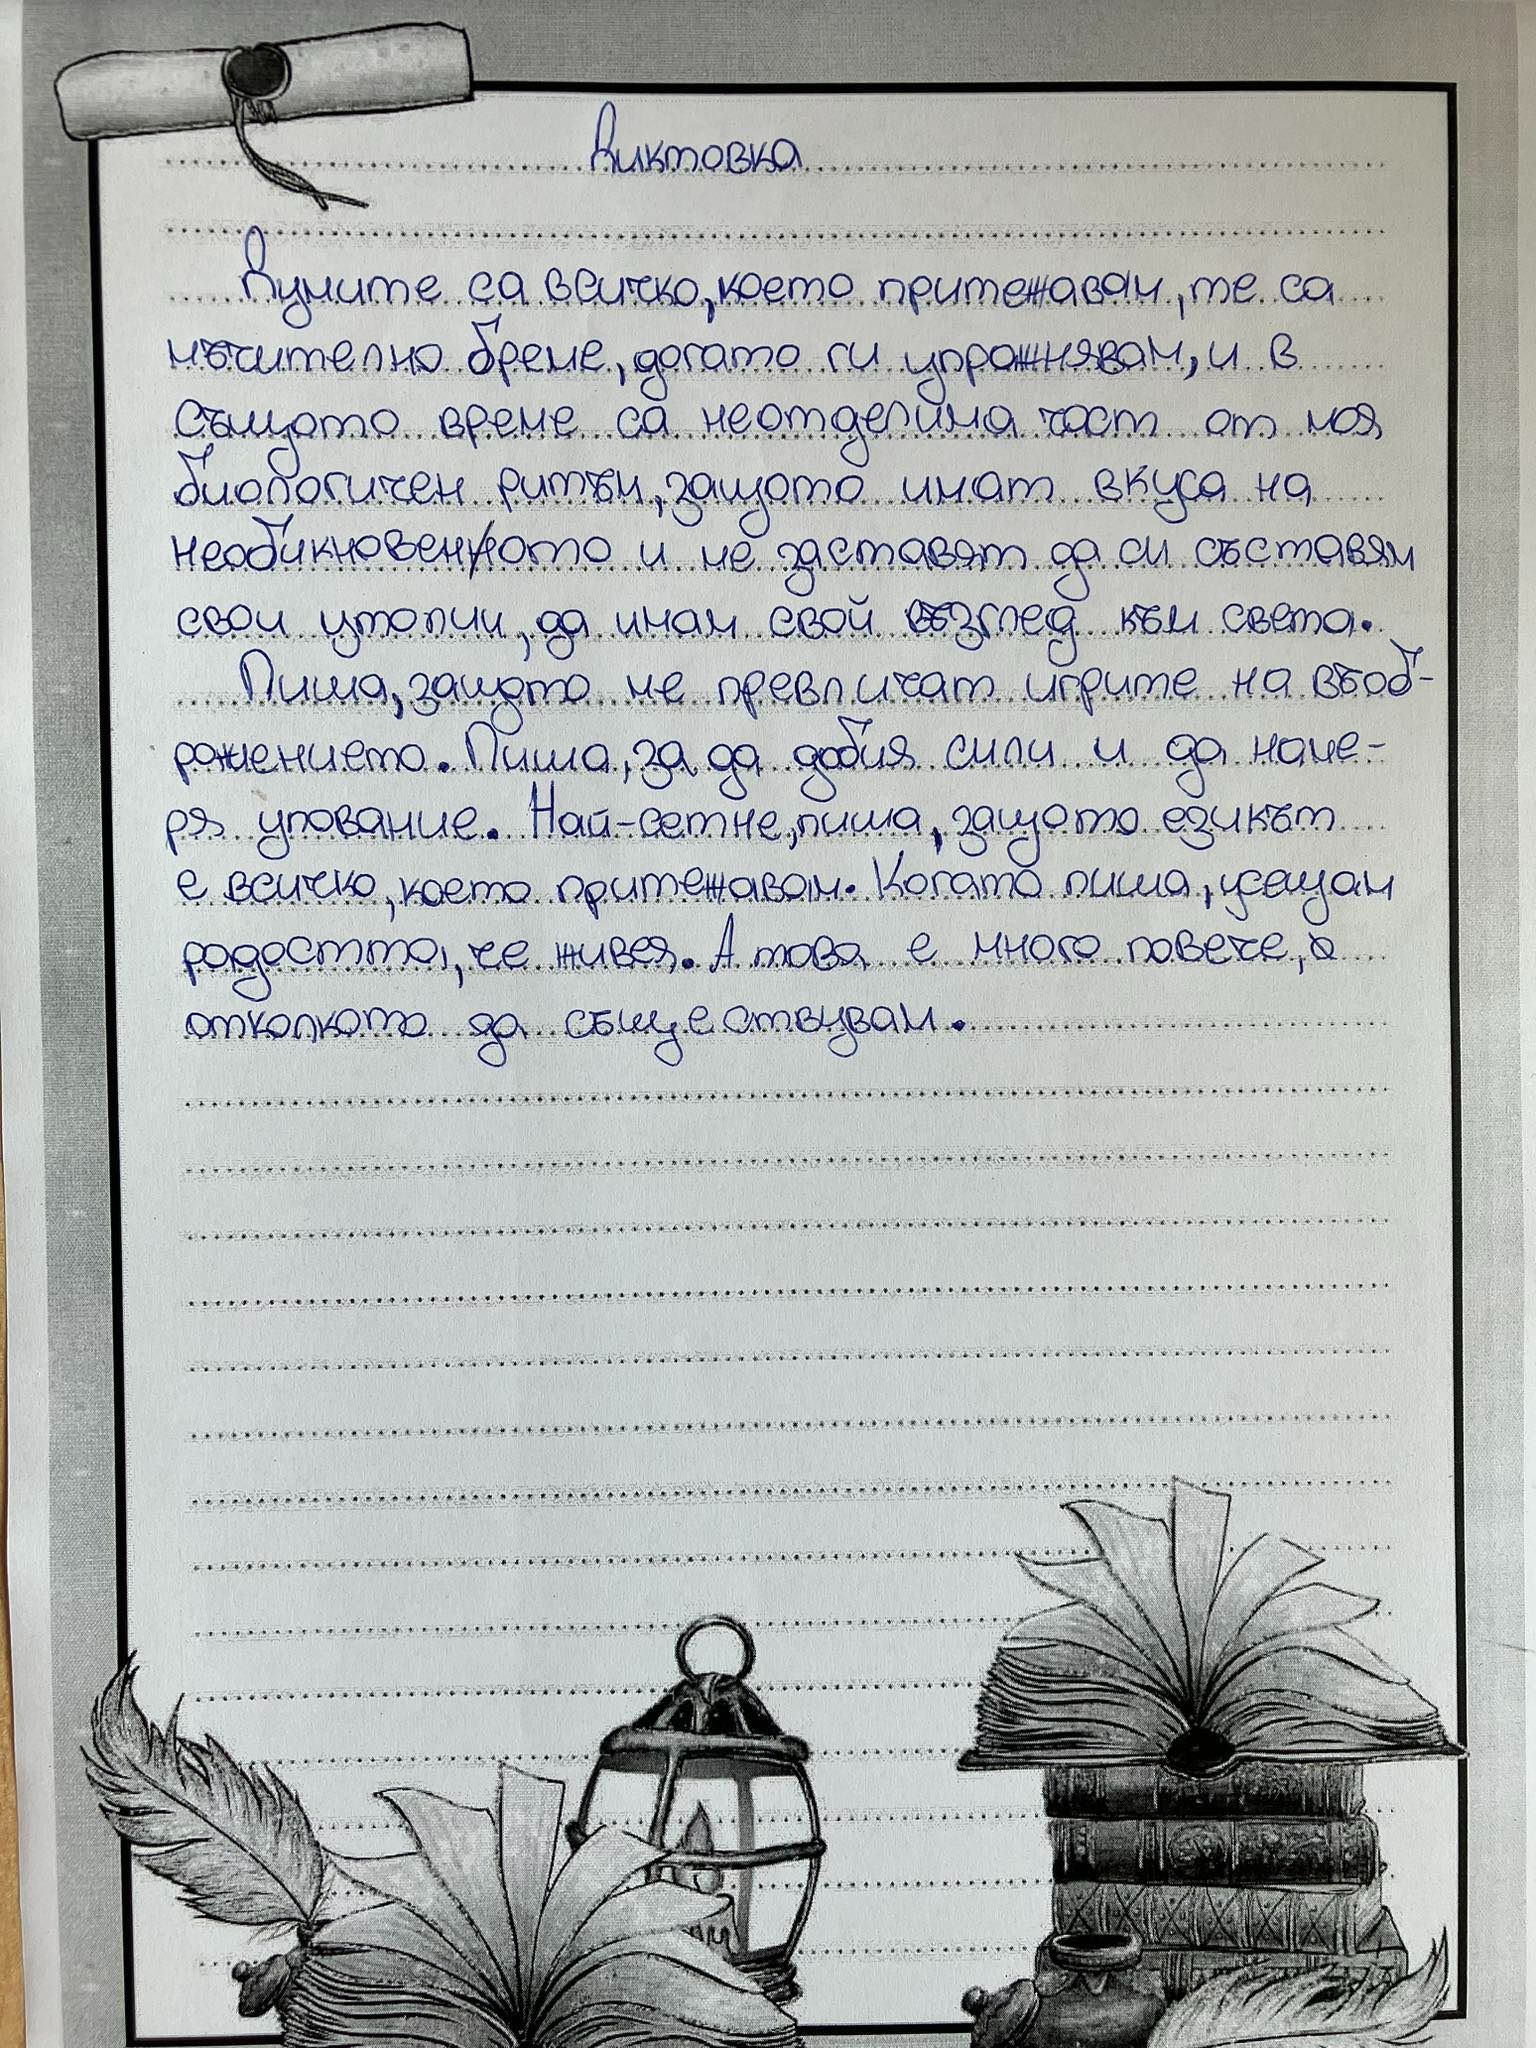 Диктовка
Думите са всичко, което притежавам, те са
мъчително бреме, догато ги упражнявам, и в
същото време са неотделима част от моя
биологичен ритъм, защото имат вкуса на
необикновеното и ме заставят да си съставям
свои утопии, да имам свой възглед към света.
Пиша, защото ме превличат игрите на въоб-
ражението. Пиша, за да добия сили и да наме-
ря упование. Най-сетне, пиша, защото езикът
е всичко, което притежавам. Когато пиша, усещам
радостта, че живея. А това е много повече,
отколкото да съществувам.